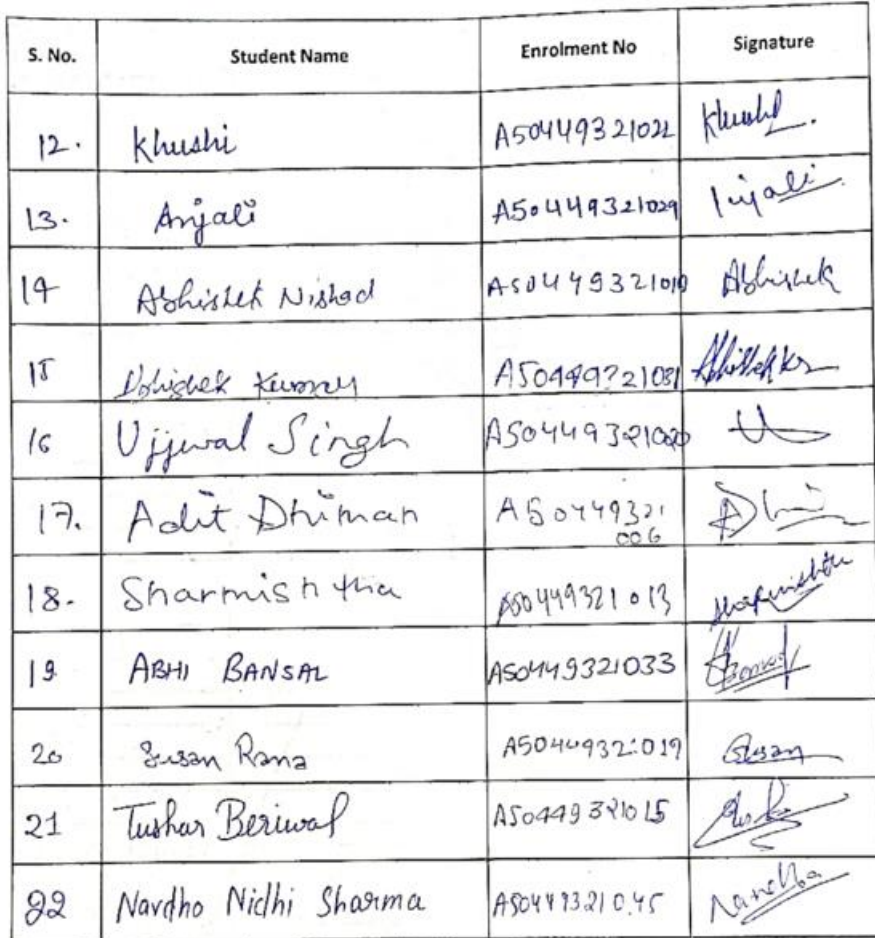 S. No. Student Name Enrolment No Signature
12. Khushi A50449321022 Khushi
13. Anjali A50449321029 Anjali
14 Abhishek Nishad A50449321010 Abhishek
15 Abhishek Kumar A50449321031 Abhishek kr
16 Ujjwal Singh A50449321020
17. Adit Dhiman A50449321
006
18. Sharmishtha A50449321013 Sharmishtha
19 ABHI BANSAL A50449321033
20 Susan Rana A50449321019 Susan
21 Tushar Beriwal A50449321015
22 Navdho Nidhi Sharma A50449321045